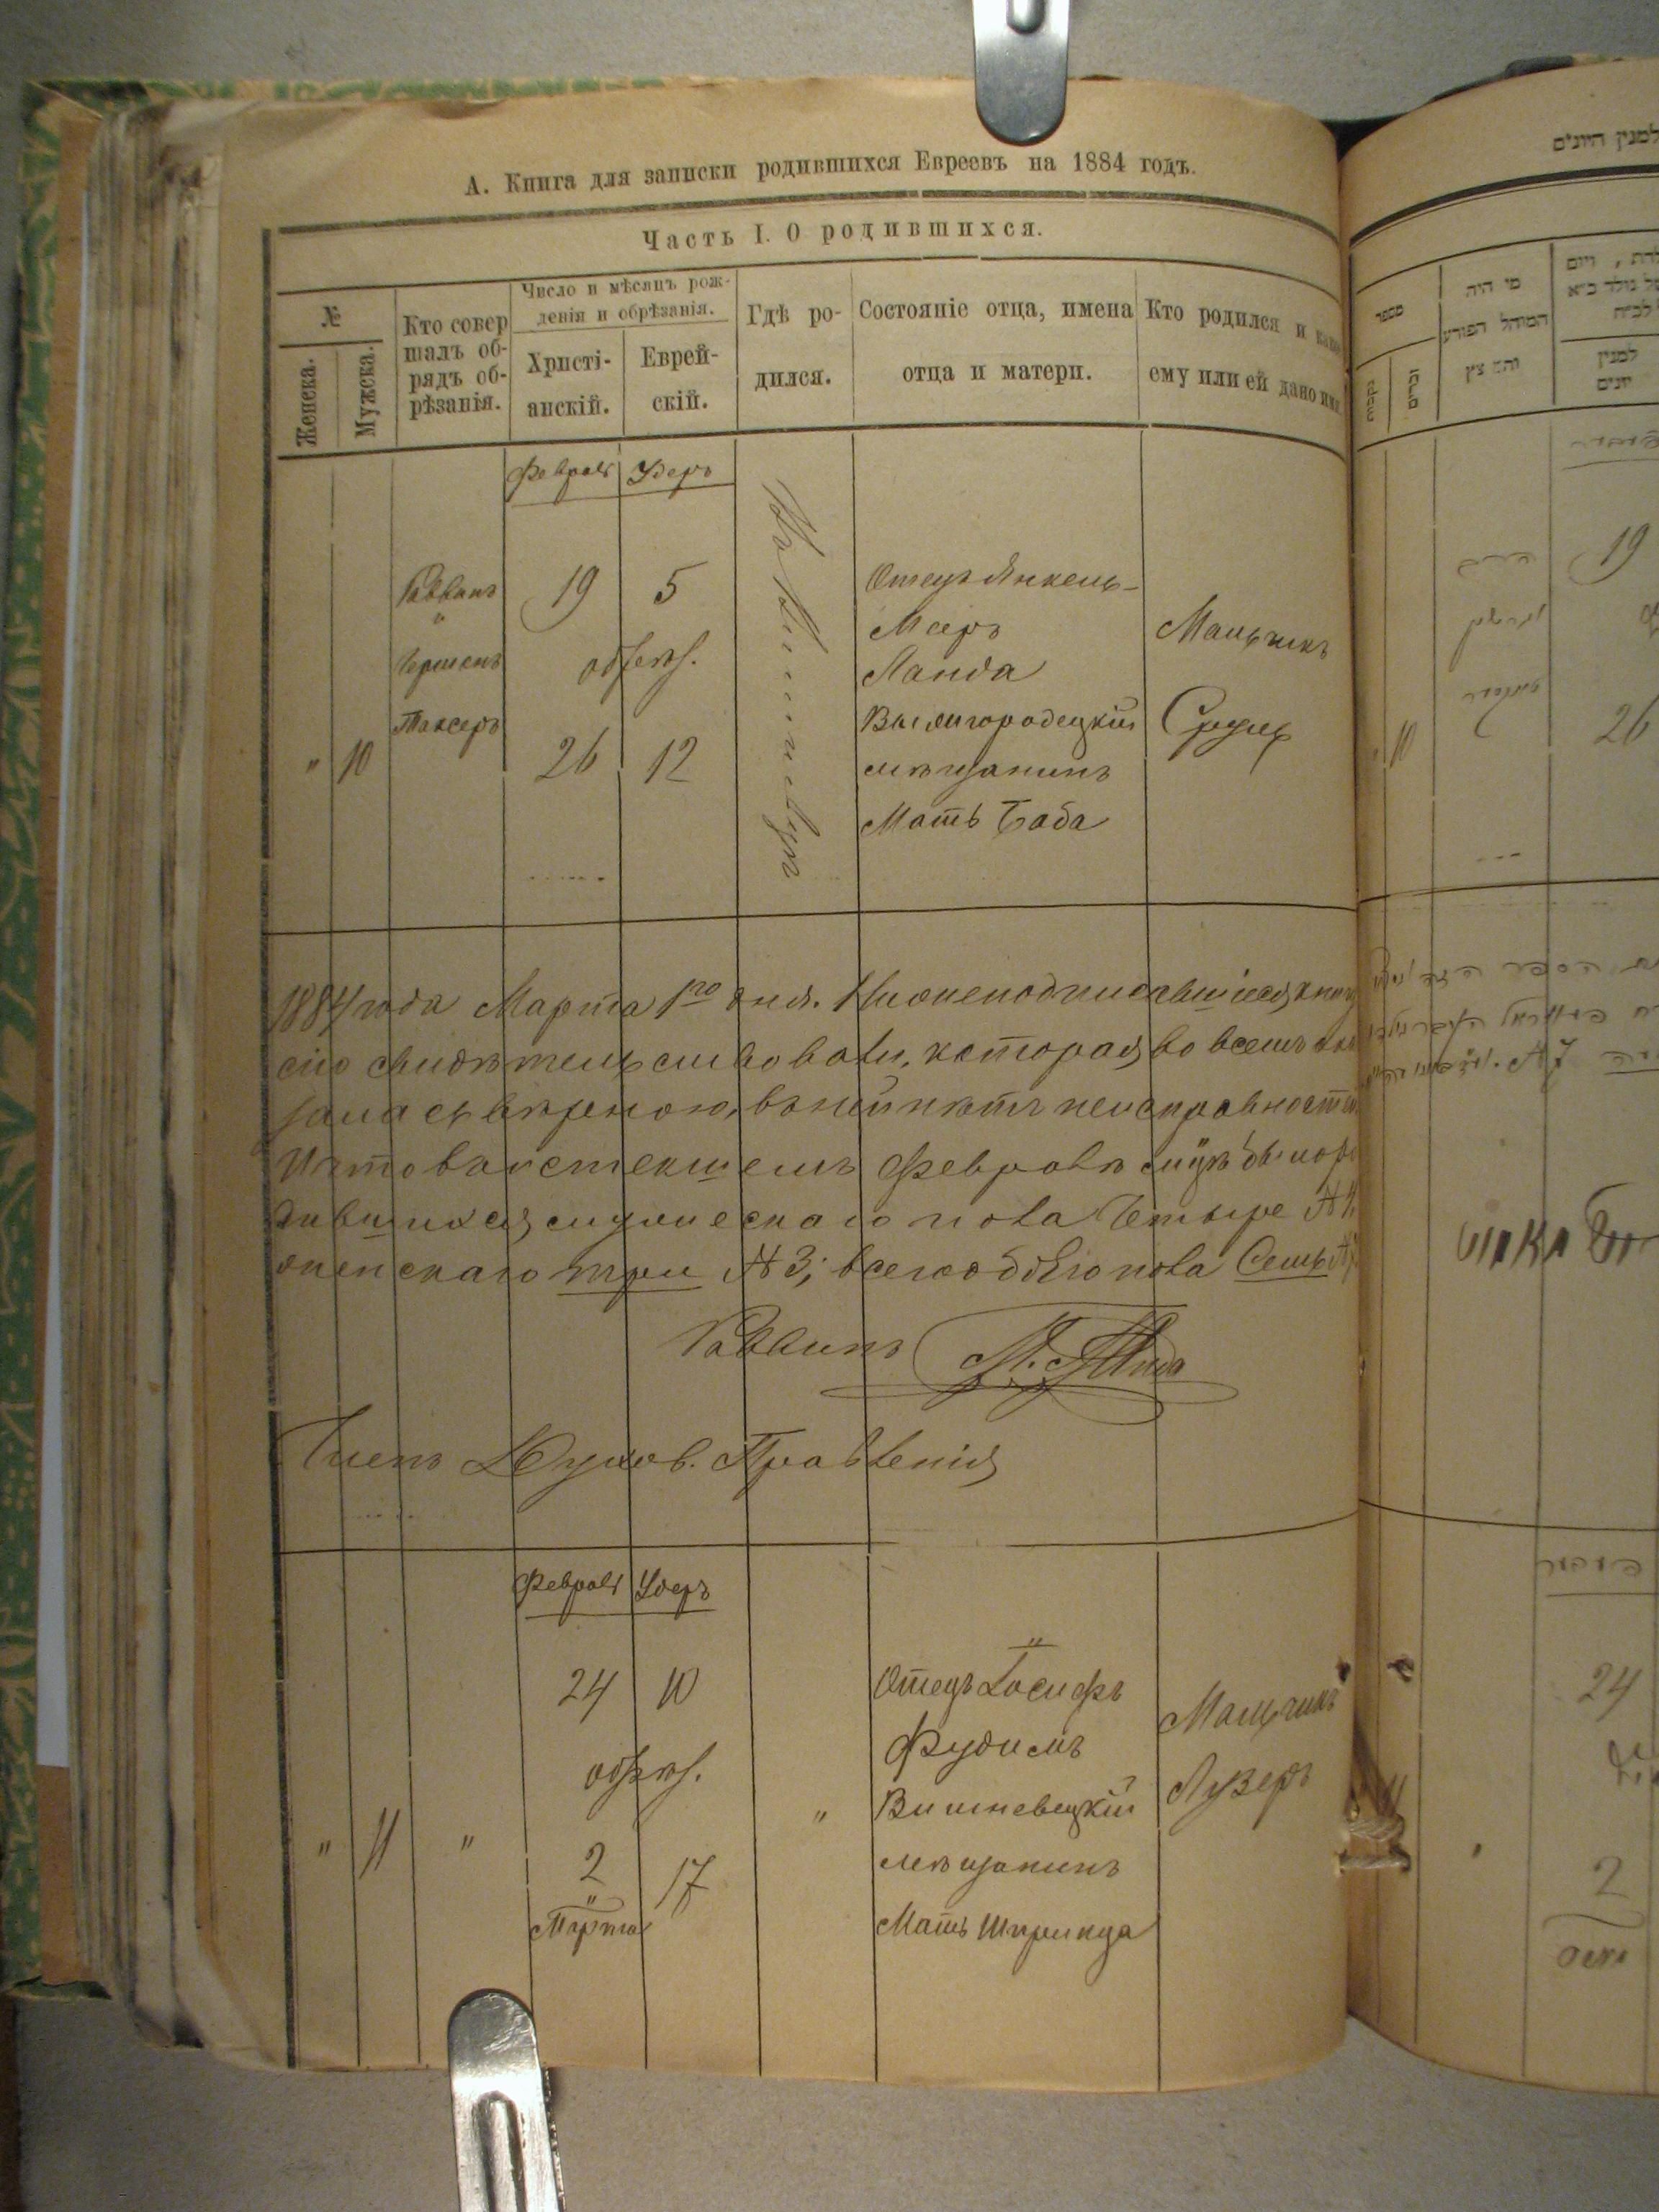 А. Книга для записки родившихся Евреевъ на 1884 годъ.
Часть I. О родившихся.
№
Женска.
Мужска.
Кто совер
шалъ об-
рядъ об-
рѣзанія.
Число и мѣсяцъ рож-
денія и обрѣзанія.
Христі-
анскій.
Еврей-
скій.
Гдѣ ро-
дился.
Состояніе отца, имена
отца и матери.
Кто родился и како
ему или ей дано имя
Февраль Удеръ
" 10
Раввинъ
"
Гершенъ
Таксеръ
19 5
обрѣз.
26 12
Отецъ Янкель-
Мееръ
Ланда
Вышгородецкій
мѣщанинъ
Мать Баба
Мальчикъ
Сруль
1884 года Марта 1го дня. Нижеподписавшіеся книгу
сію свидѣтельствовали, которая во всемъ ока
залась вѣрною, въ ней нѣтъ неисправности
И что въ истекшемъ Февралѣ мцѣ было ро
дившихся мужескаго пола Четыре № 4,
женскаго три № 3; всего обоего пола Семь № 7
Раввинъ
Членъ Духов. Правленія
Февраль Удеръ
" 11 "
24 10
обрѣз.
2 17
"
Марта
"
"
Отецъ Іосифъ
Фудимъ
Вишневецкій
мѣщанинъ
Мать Шпринца
Мальчикъ
Лузеръ
למנין היונים
מספר
נקבות
זכרים
מי היה
המוהל הפורע
למנין
יונים
19
26
" 10
24
2